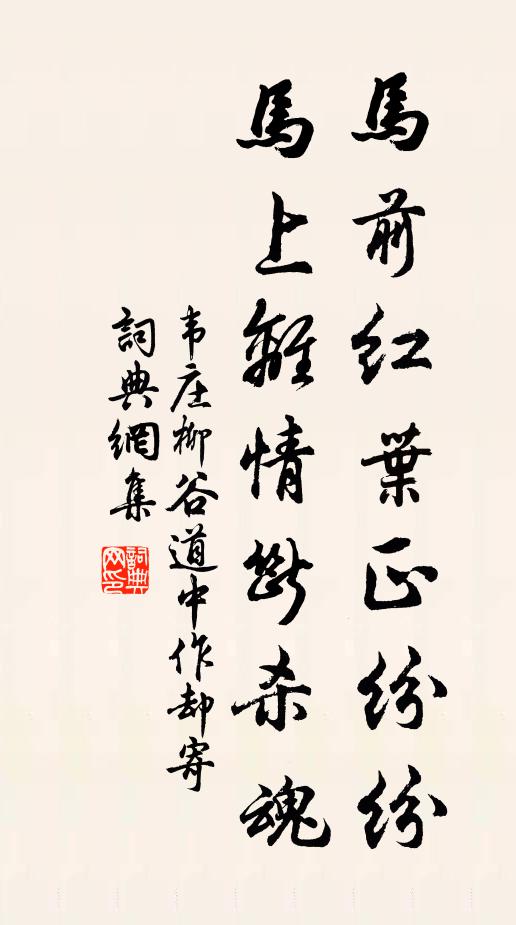 馬前红葉正紛紛
馬上離情斷杀魂
韦庄柳谷道中作却寄
詞典網集
詞典网印